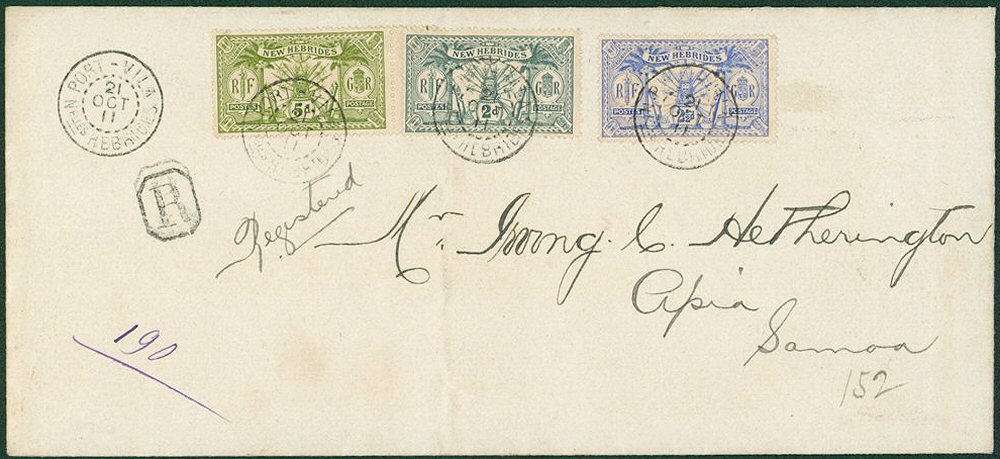 PORT-VILA
21
OCT
11
Nlles HEBRIDES
NEW HEBRIDES
RF
GR
POSTES
5d.
POSTAGE
NEW HEBRIDES
RF
GR
POSTES
2d
POSTAGE
NEW HEBRIDES
RF
GR
POSTES
2½d
POSTAGE
R
Registered
Mr. Irving. C. Hetherington
Apia
Samoa
190
152